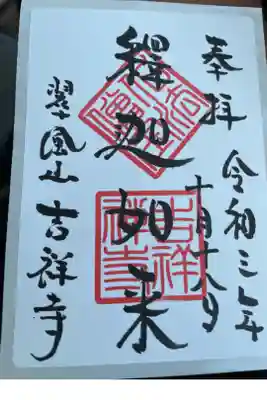 奉拝
令和三年
十月十六日
釋迦如来
翠風山 吉祥寺
吉祥
禅寺